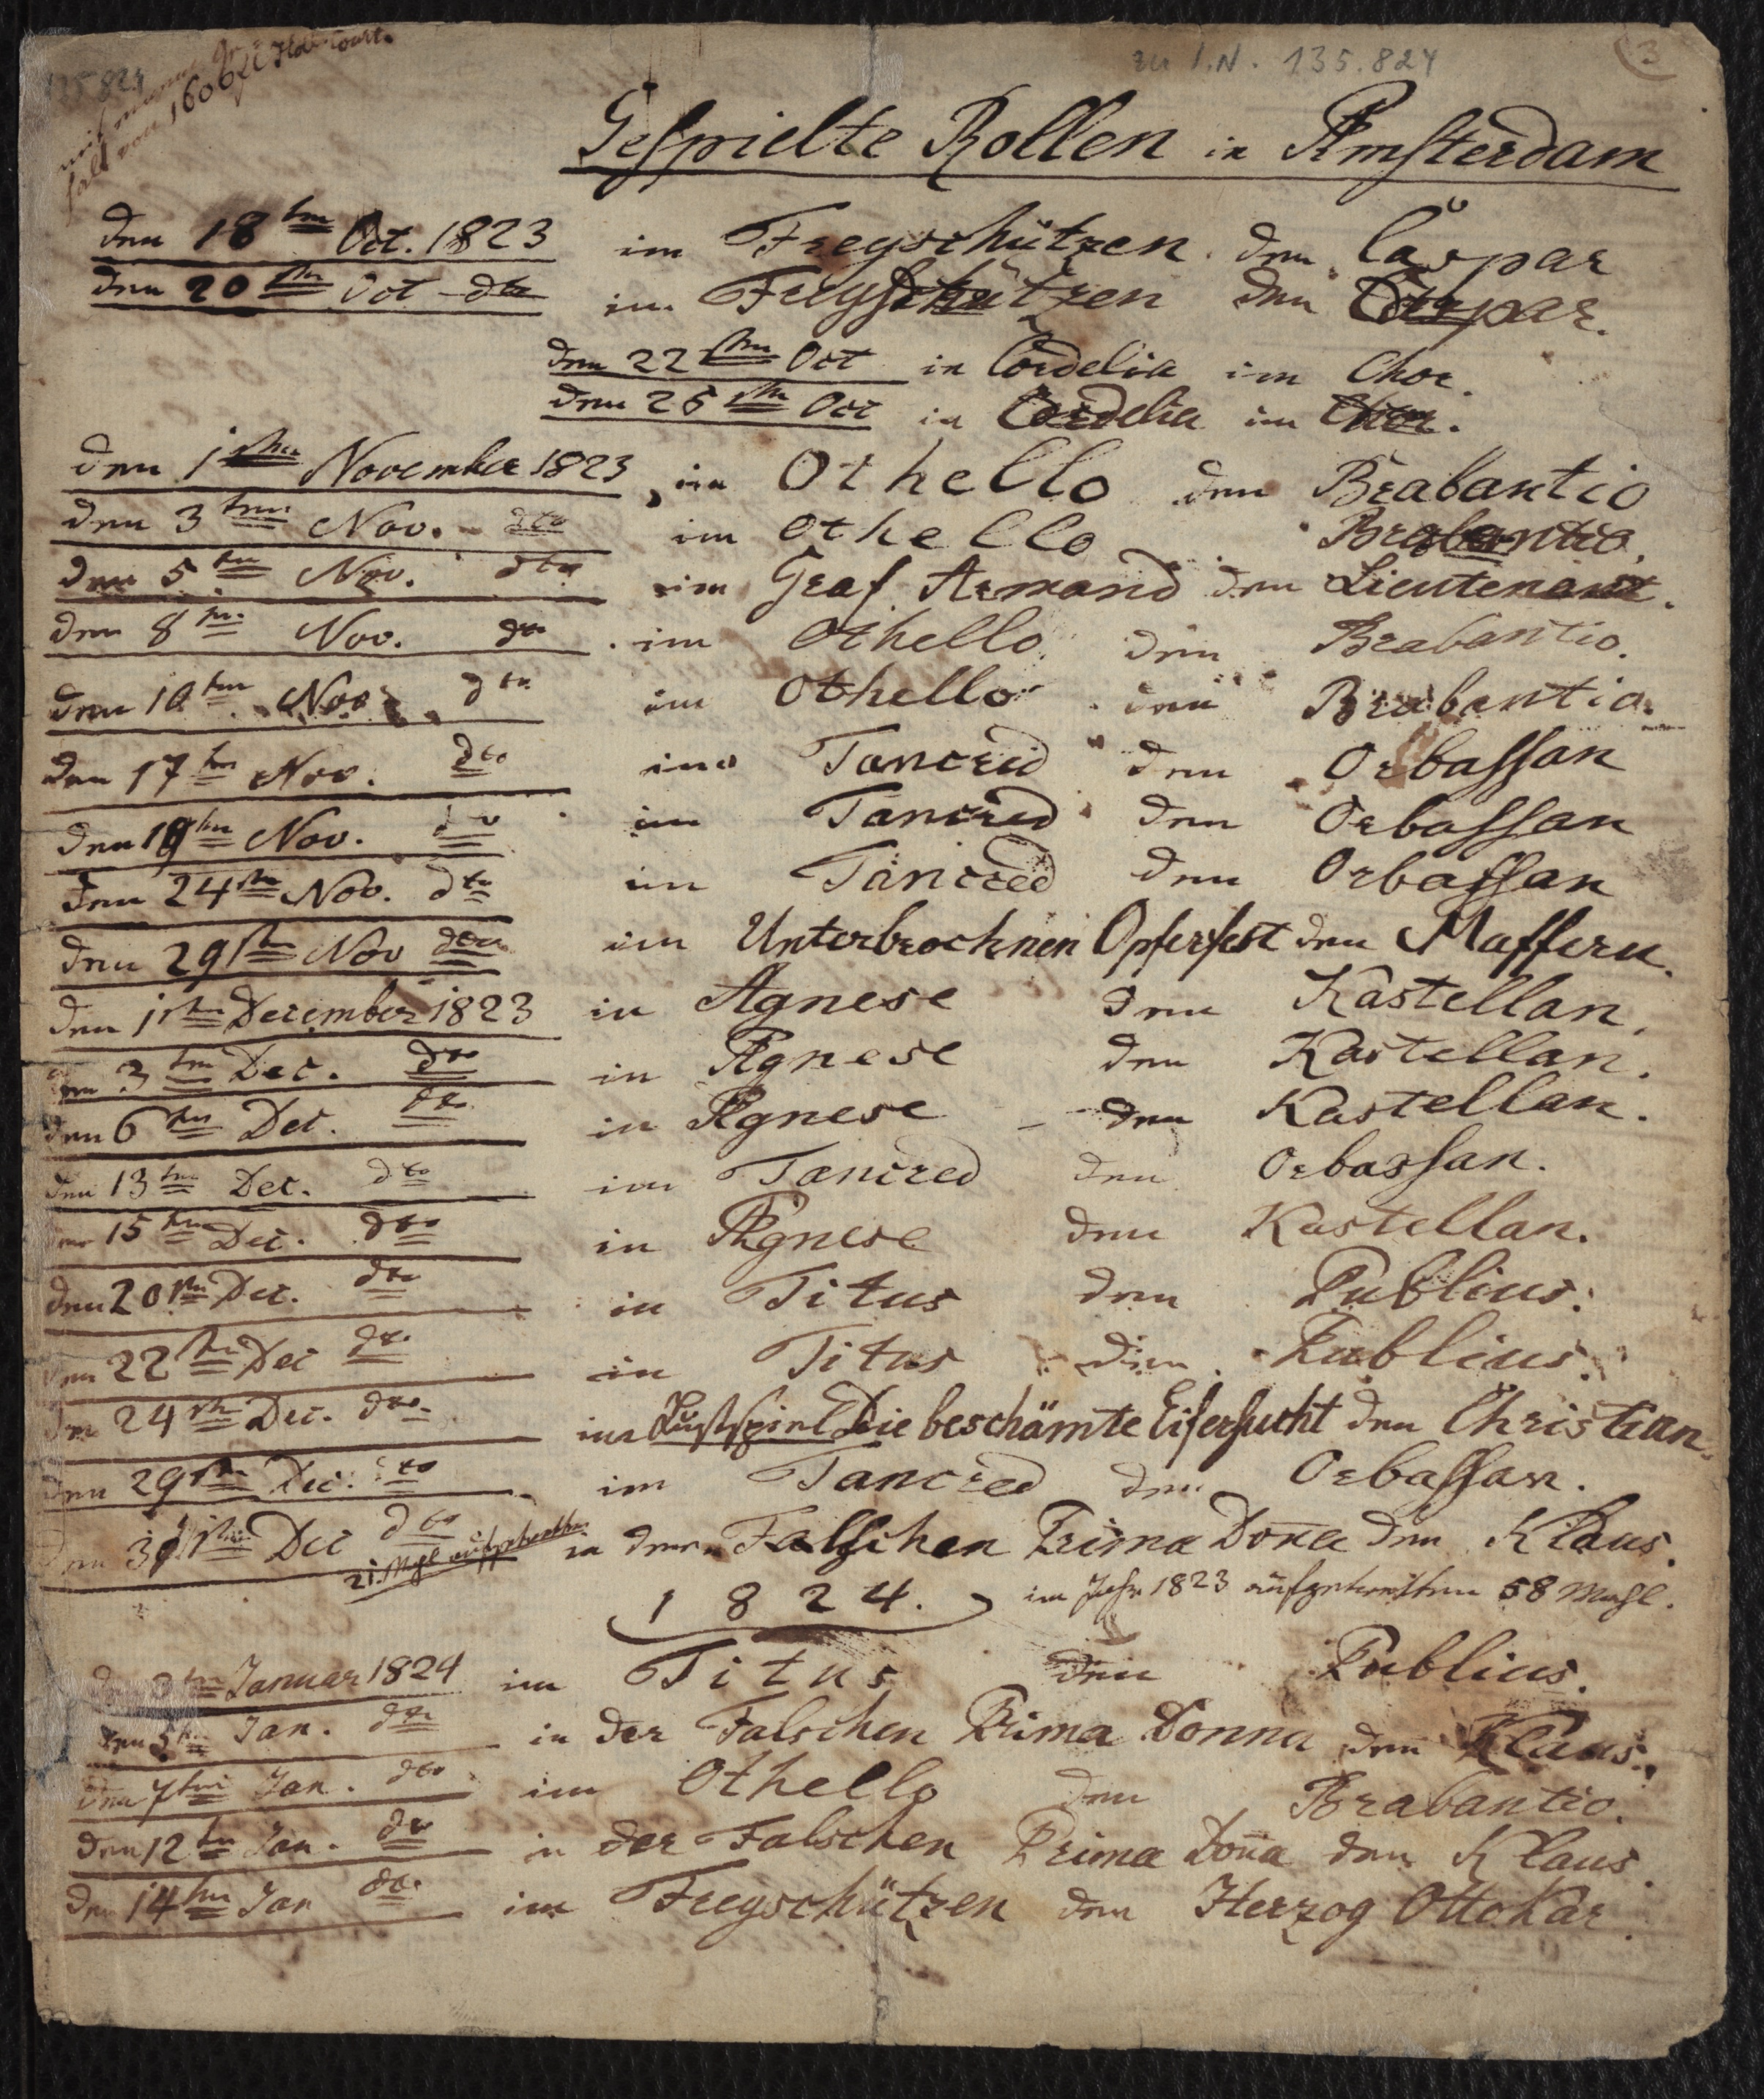 zu I.N. 135.824
3
135 824
von 1606
Gespielte Rollen in Amsterdam
den 18ten Oct. 1823 im Freyschützen den Caspar
den 20sten Oct dto im Freyschützen den Caspar.
den 22sten Oct in Cordelia im Chor.
den 25sten Oct in Cordelia im Chor.
den 1sten November 1823 im Othello den Brabantio
den 3ten Nov. dto im Othello Brabantio.
den 5ten Nov. dto im Graf Armand den Lieutenant.
den 8ten Nov. dto im Othello den Brabantio.
den 10ten Nov. dto im Othello den Brabantio.
den 17ten Nov. dto im Tancred den Orbassan
den 19ten Nov. dto im Tancred den Orbassan
den 24sten Nov. dto im Tancred den Orbassan
den 29sten Nov dto im Unterbrochnen Opferfest den Maffern.
den 1sten December 1823 in Agnese den Kastellan.
den 3ten Dec. dto in Agnese den Kastellan.
den 6ten Dec. dto in Agnese den Kastellan.
den 13ten Dec. dto im Tancred den Orbassan.
den 15ten Dec. dto in Agnese den Kastellan.
den 20sten Dec. dto in Titus den Publius.
den 22sten Dec dto in Titus den Publius.
den 24sten Dec. dto. im Lustspiel Die beschämte Eifersucht den Christian.
den 29sten Dec. dto im Tancred den Orbassan.
den 31sten Dec dto in der Falschen Prima Dona den Klaus.
21. Mahl aufgetretten
1824. im Jahr 1823 aufgetretten 58 Mahl.
den 3ten Januar 1824 im Titus den Publius.
den 5ten Jan. dto in der Falschen Prima Donna den Klaus.
den 7ten Jan. dto im Othello den Brabantio.
den 12ten Jan. dto in der Falschen Prima Dona den Klaus.
den 14ten Jan dto. im Freyschützen den Herzog Ottokar.